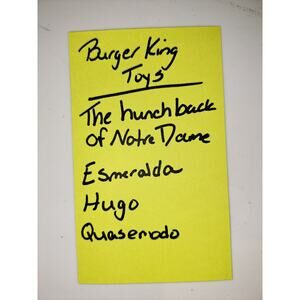 Burger King
Toys
The hunchback
of Notre Dame
Esmeralda
Hugo
Quasemodo